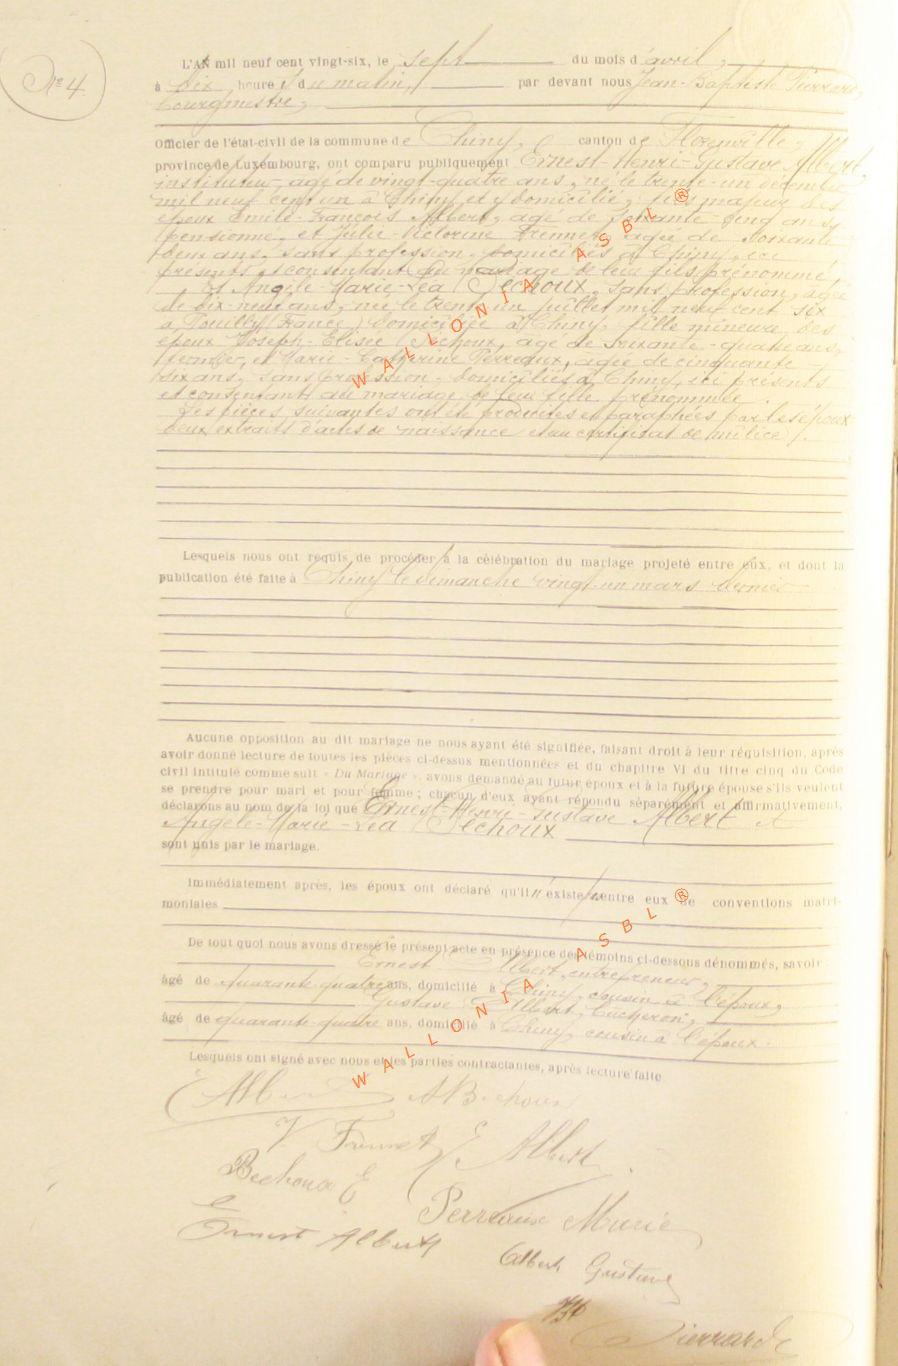 Nº 4
L'AN mil neuf cent vingt-six, le sept du mois d'avril,
à dix heures du matin, par devant nous Jean-Baptiste Pierrard,
bourgmestre,
Officier de l'état-civil de la commune de Chiny, canton de Florenville,
province de Luxembourg, ont comparu publiquement Ernest-Henri-Gustave Albert,
instituteur, agé de vingt-quatre ans, né le trente-un décembre
mil neuf cent un à Chiny et y domicilié, fils majeur des
époux Emile-François Albert, agé de soixante-cinq ans,
pensionné, et Julie-Victorine Frennet, agée de soixante
deux ans, sans profession, domiciliés à Chiny, ici
présents et consentant au mariage de leur fils prénommé,
Et Angèle-Marie-Léa Bechoux, sans profession, agée
de dix-neuf ans, née le trente un juillet mil neuf cent six
à Pouilly (France) domiciliée à Chiny, fille mineure des
époux Joseph-Elisée Bechoux, agé de soixante-quatre ans,
et Marie-Catherine Perreaux, agée de cinquante
six ans, sans profession, domiciliés à Chiny, ici présents
et consentant au mariage de leur fille prénommée.
Les pièces suivantes ont été produites et paraphées par les époux
deux extraits d'actes de naissance et un certificat de milice.
Lesquels nous ont requis de procéder à la célébration du mariage projeté entre eux, et dont la
publication été faite à Chiny le dimanche vingt-un mars dernier
Aucune opposition au dit mariage ne nous ayant été signifiée, faisant droit à leur réquisition, après
avoir donné lecture de toutes les pièces ci-dessus mentionnées et du chapitre VI du titre cinq du Code
civil intitulé comme suit « Du Mariage », avons demandé au futur époux et à la future épouse s'ils veulent
se prendre pour mari et pour femme ; chacun d'eux ayant répondu séparément et affirmativement,
déclarons au nom de la loi que Ernest-Henri-Gustave Albert et
Angèle-Marie-Léa Bechoux
sont unis par le mariage.
Immédiatement après, les époux ont déclaré qu'il n'existe pas entre eux de conventions matri-
moniales
De tout quoi nous avons dressé le présent acte en présence des témoins ci-dessous dénommés, savoir :
Ernest Albert, entrepreneur,
âgé de quarante quatre ans, domicilié à Chiny, cousin à l'époux,
Gustave Albert, bucheron,
âgé de quarante-quatre ans, domicilié à Chiny, cousin à l'époux.
Lesquels ont signé avec nous et les parties contractantes, après lecture faite
E Albert A Bechoux
V Frennet E Albert
Bechoux E
Perreaux Marie
Ernest Albert
Albert Gustave
Pierrard
WALLONIA ASBL ®
WALLONIA ASBL ®